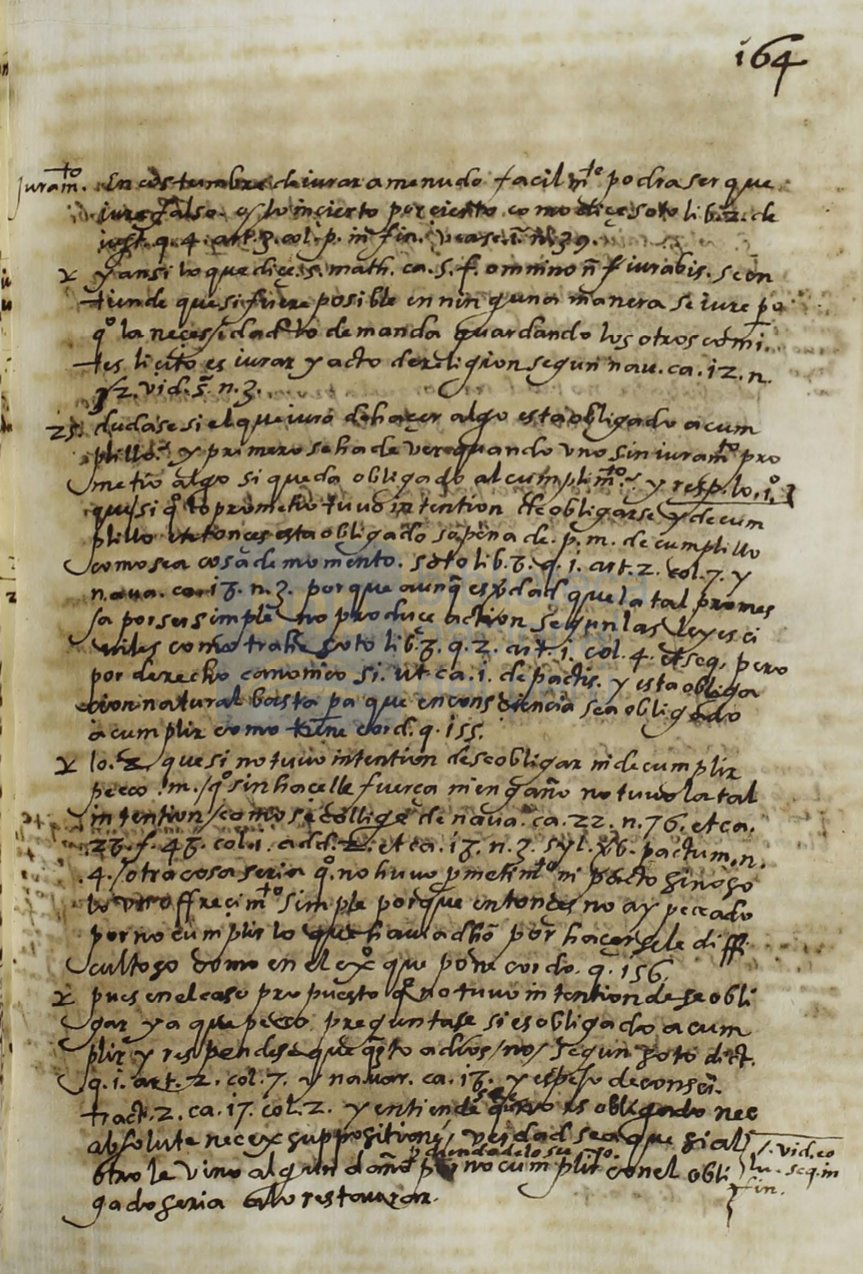 164
Juramto. En costumbre de iurar a menudo facilmte podra ser que
iure falso y lo incierto por cierto como dice soto lib. 2. de
iust. q. 4. art. 3. col. p. in fin. vease n. 39.
y ansi lo que dice s. math. ca. 5. f. omnino ñ iurabis. se en
tiende que si fuere posible en ninguna manera se iure po
qo la necessidad lo demanda guardando los otros comi
tes licito es iurar y acto de religion segun nau. ca. 12. n.
vid. n. 3.
25. dudase si el que iuro de hacer algo esta obligado a cum
plillo. y primero se ha de ver quando uno sin iuramto pro
metio algo si queda obligado al cumplimto. y resp. lo. 1o.
que si qo lo prometio tuvo intention de obligarse y de cum
plillo entonces esta obligado so pena de p. m. de cumplillo
como sea cosa de momento. soto lib. 7. q. 1. art. 2. col. 7. y
naua. ca. 17. n. 3. porque aunq es vdad que la tal promes
sa por ser simple no produce action segun las leyes ci
viles como trahe soto lib. 7. q. 2. art. 1. col. 4. et seq. pero
por derecho canonico si. ut ca. 1. de pactis. y esta obliga
cion natural basta pa que en consciencia sea obligado
a cumplir como tiene cord. q. 155.
y lo. 2. que si no tuvo intention de se obligar ni de cumplir
pecco .m. / qo sin hacelle fuerça ni engaño no tuvo la tal
intention / como se collige de naua. ca. 22. n. 76. et ca.
col. 1. add. 2. et ca. 17. n. 3. syl. vb. pactum. n.
4. / otra cosa seria qo. no huvo pmetimto ni pacto sino so
lo un offrecimto simple porque entonces no ay peccado
por no cumplir lo que havia dho por hacersele diffi
cultoso como en el exo que pone cordo. q. 156.
y pues en el caso propuesto qo no tuvo intention de se obli
gar ya que pecco preguntase si es obligado a cum
plir y respondese que qto a dios / no / segun soto dict.
q. 1. art. 2. col. 7. y nauar. ca. 17. y espejo de consci.
tract. 2. ca. 17. col. 2. y entiende que no es obligado nec
absolute nec ex suppositione / verdad sea que si al
otro le vino algun daño por no cumplir con el obli
gado seria a lo restaurar.
/. vid. co
lu. seq. in
fin.